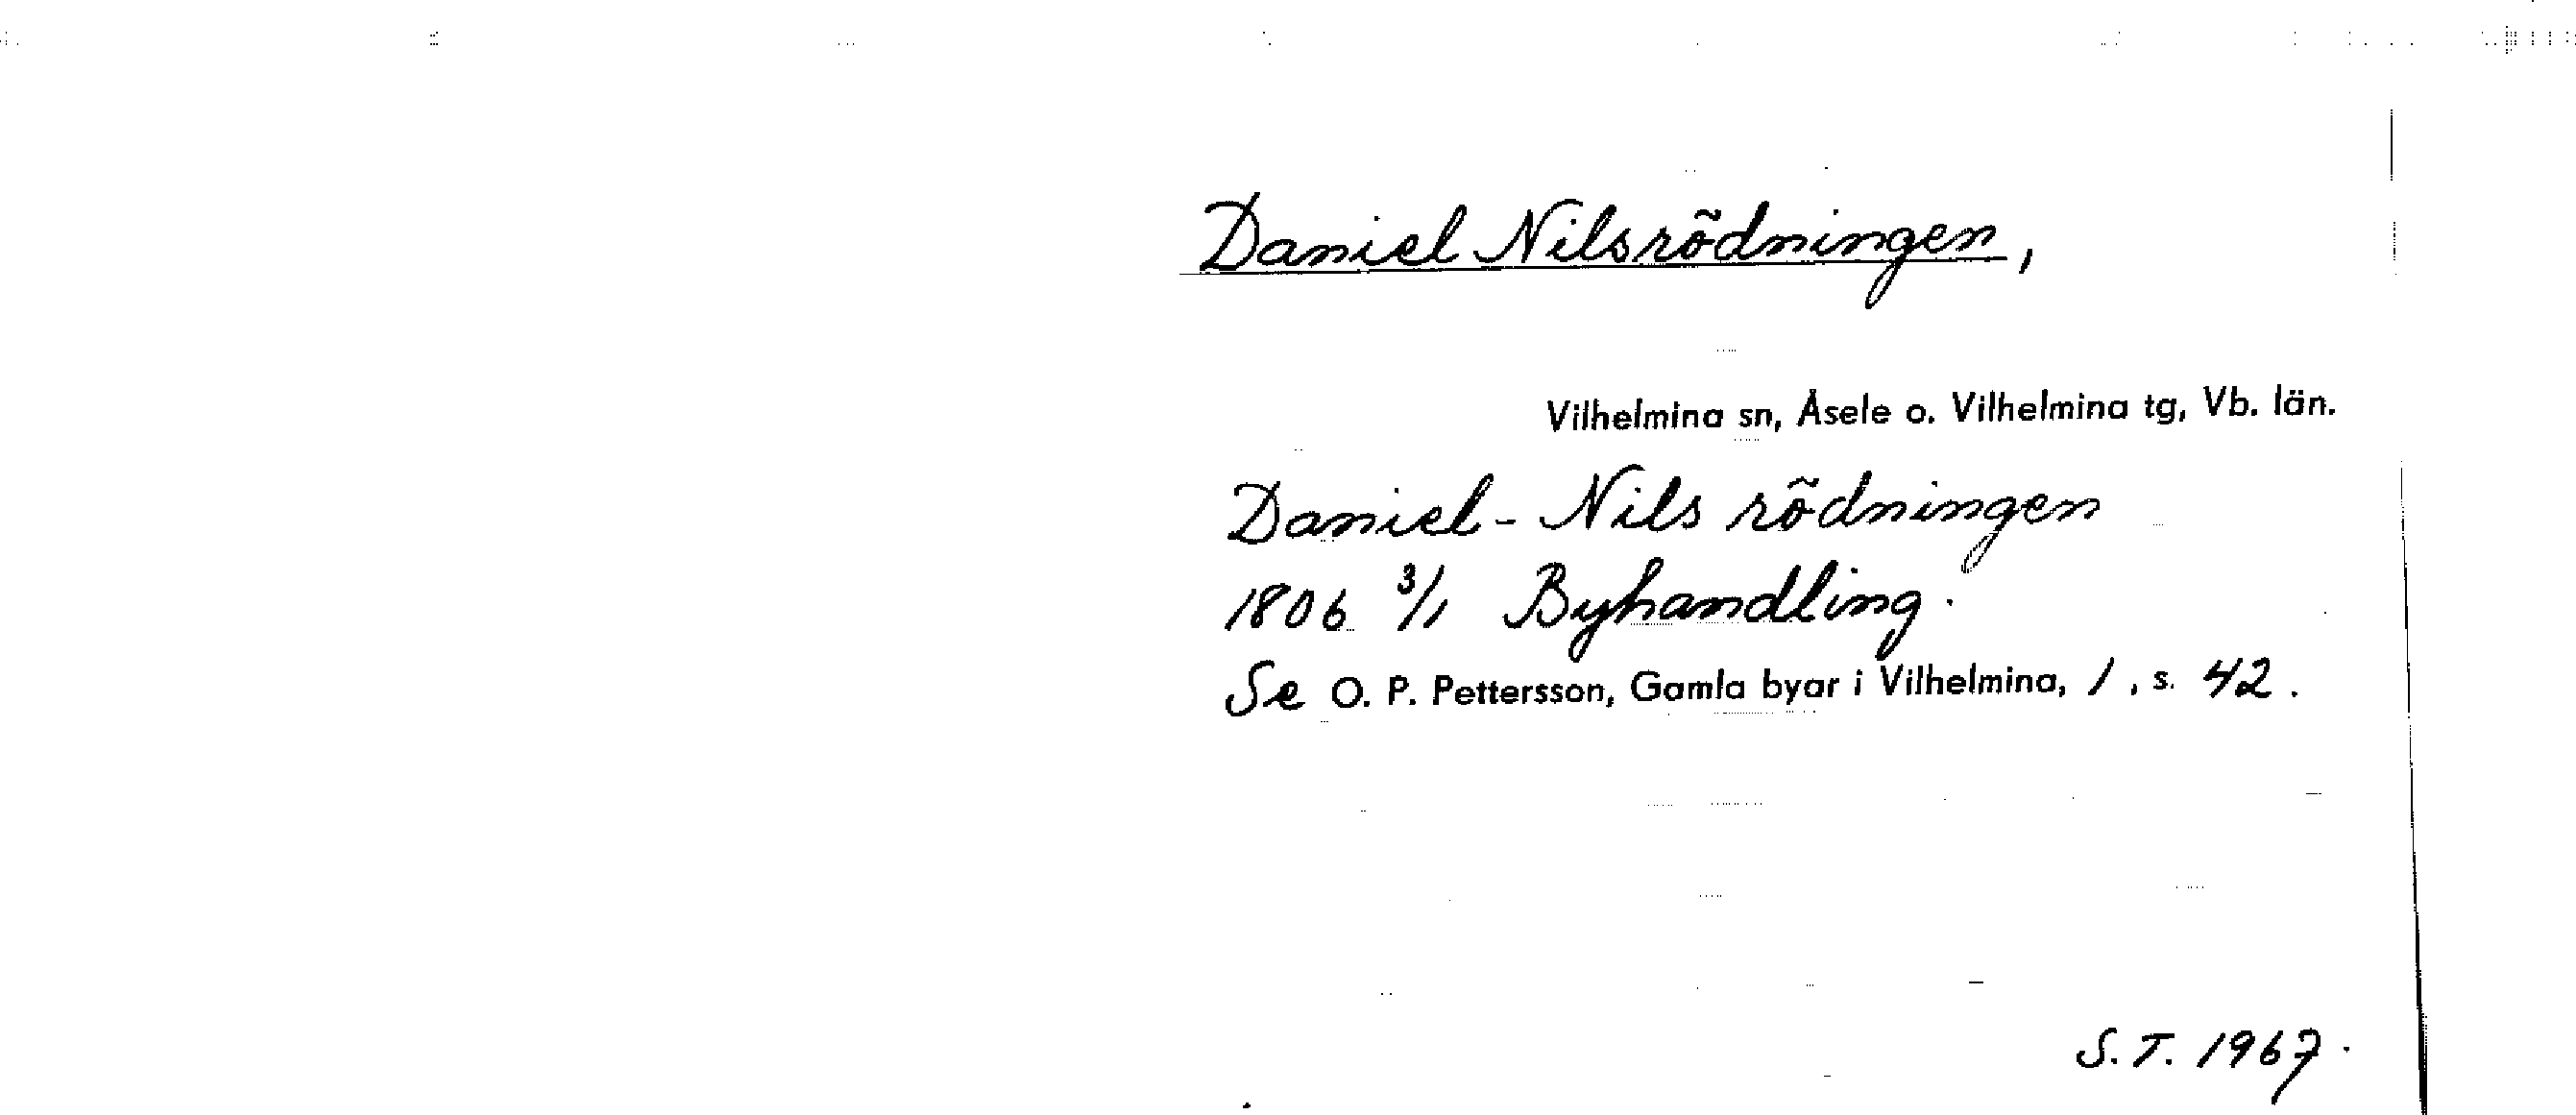 Daniel Nilsrödningen,
Vilhelmina sn, Åsele o. Vilhelmina tg, Vb. län.
Daniel-Nils rödningen
1806 3/1 Byhandling.
Se O. P. Pettersson, Gamla byar i Vilhelmina, 1, s. 42.
S. T. 1967.